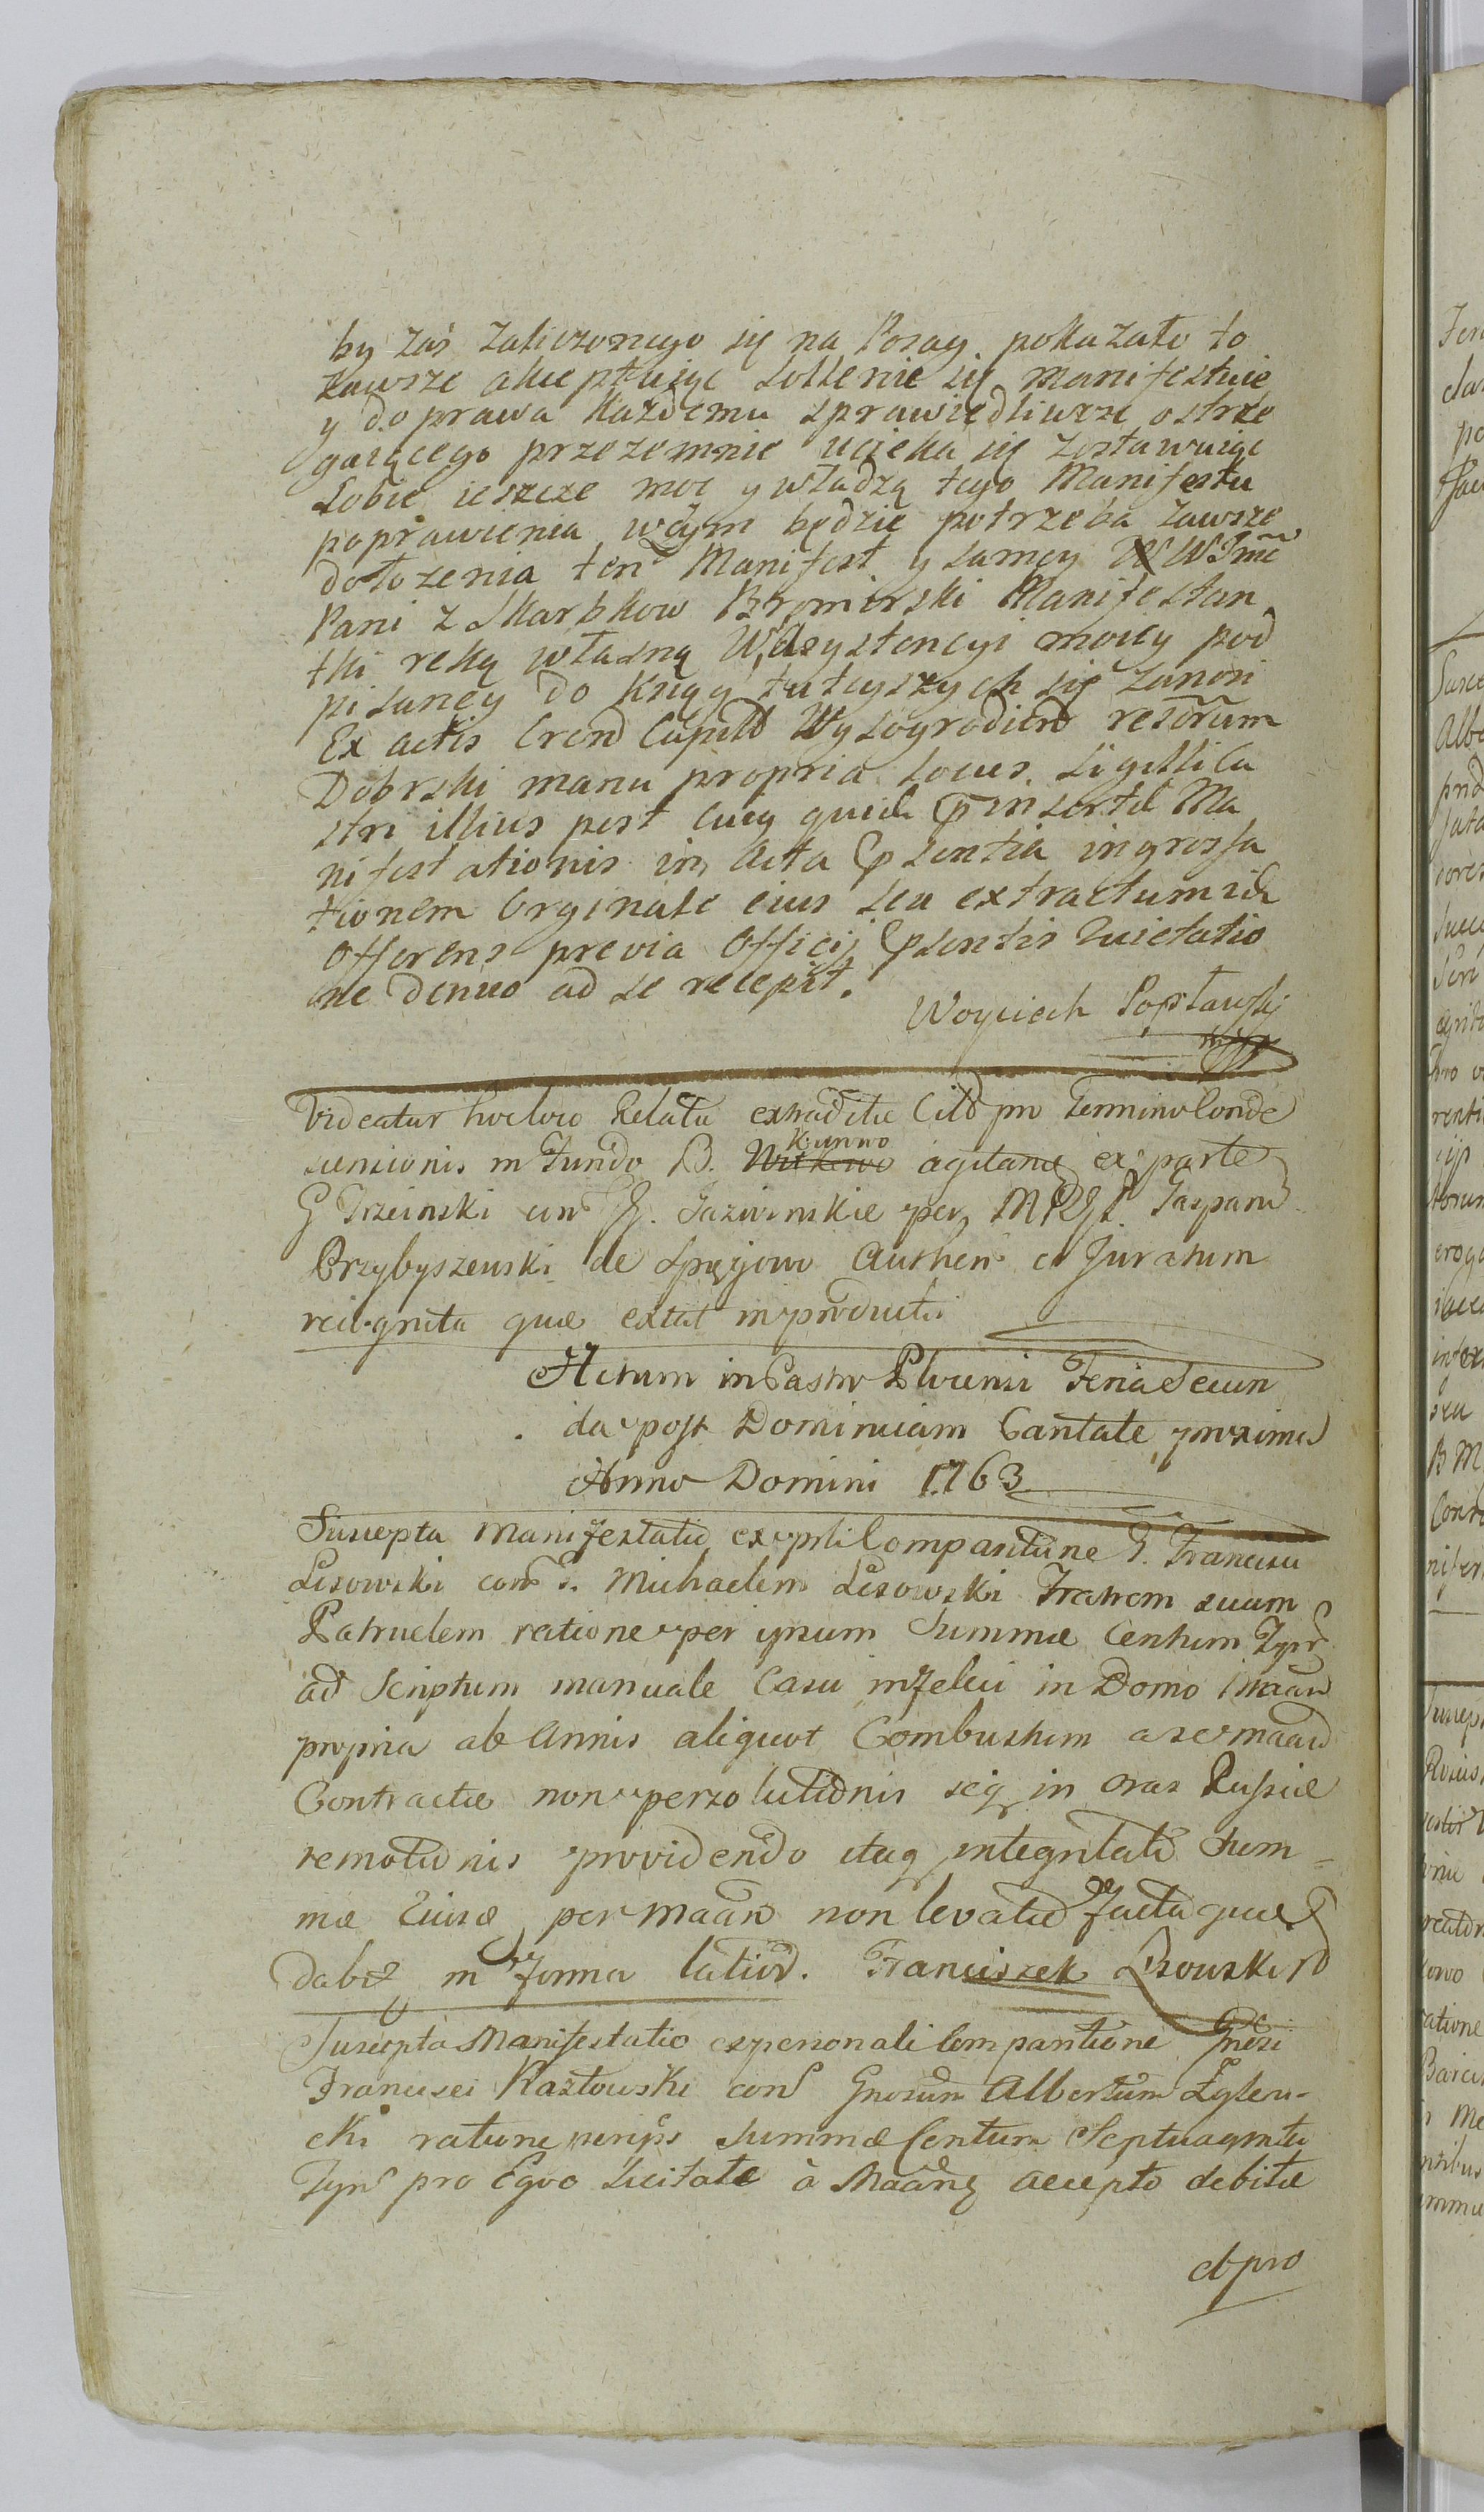 by zaś zaliczonego się na Posag. pokazało to
zawsze akceptuiąc sollenie się manifestuie
y do prawa każdemu sprawiedliwszę ostrze
gaiącego przezemnie ucieka się zostawuiąc
sobie ieszcze moc y władzą tego Manifestu
poprawienia wczym będzie potrzeba zawsze
dołożenia ten Manifest y samey W JMć
Pani z Skarbkow Bromirski Manifestan
tki ręką własną W Asystencyi moiey pod
pisaney do Xsiąg tuteyszych się zanosi
Ex actis Crend Capnld Wyszogrodien resorum
Dobrski manu propria Locus Sigilli Ca
stri illius post cuiq quid pinsertæ Ma
nifestationis in Acta pսentia ingrossa
tionem Orginale eius seu extractum id
offerens previa Officij psentis Quietatio
ne denuo ad se recepit.
Woyciech Popławski
mpp
Videatur hocloco Relatio extraditæ Citd pro Termino Conde
scensionis in Fundo B. Kunwo agitand ex parte
G Trzcinski con G. Jaziwinskie per MPGf. Gaspard
Przybyszewski de Spęgowo Authen et Juratum
recognita quæ extat in productis
Actum in Castro Plocensi Feria Secun
da post Dominicam Cantate proxima
Anno Domini 1763
Suscepta Manifestatio ex psli Comparitione G. Francisci
Lisowski con G. Michaelem Lisowski Fratrem suum
Patruelem ratione per ipsum Summæ Centum Tynf
ad Scriptum manuale Casu infelici in Domo Maãn
propria ab Annis aliquot Combustum a se maãd
Contractæ non persolutionis seq in oras Russiæ
remotionis providendo itaq integritati Sum-
mæ Eiusd per Maãn non levatæ facta quæ
dabit in forma latiori. Franciszek Lisowski
Suscepta Manifestatio ex personali Comparitione Gnosi
Francisci Kazłowski con Gnosum Albertum Zglen-
cki ratione per ips Summæ Centum Septuaginta
Tynf pro Equo licitate à Maãnt accepto debitæ
et pro